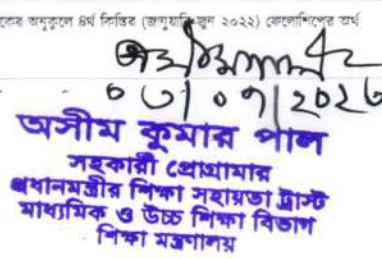 অনুকূলে ৪র্থ কিস্তির (জানুয়ারি-জুন ২০২২) ফেলোশিপের অর্থ
অসীম কুমার পাল
সহকারী প্রোগ্রামার
প্রধানমন্ত্রীর শিক্ষা সহায়তা ট্রাস্ট
মাধ্যমিক ও উচ্চ শিক্ষা বিভাগ
শিক্ষা মন্ত্রণালয়